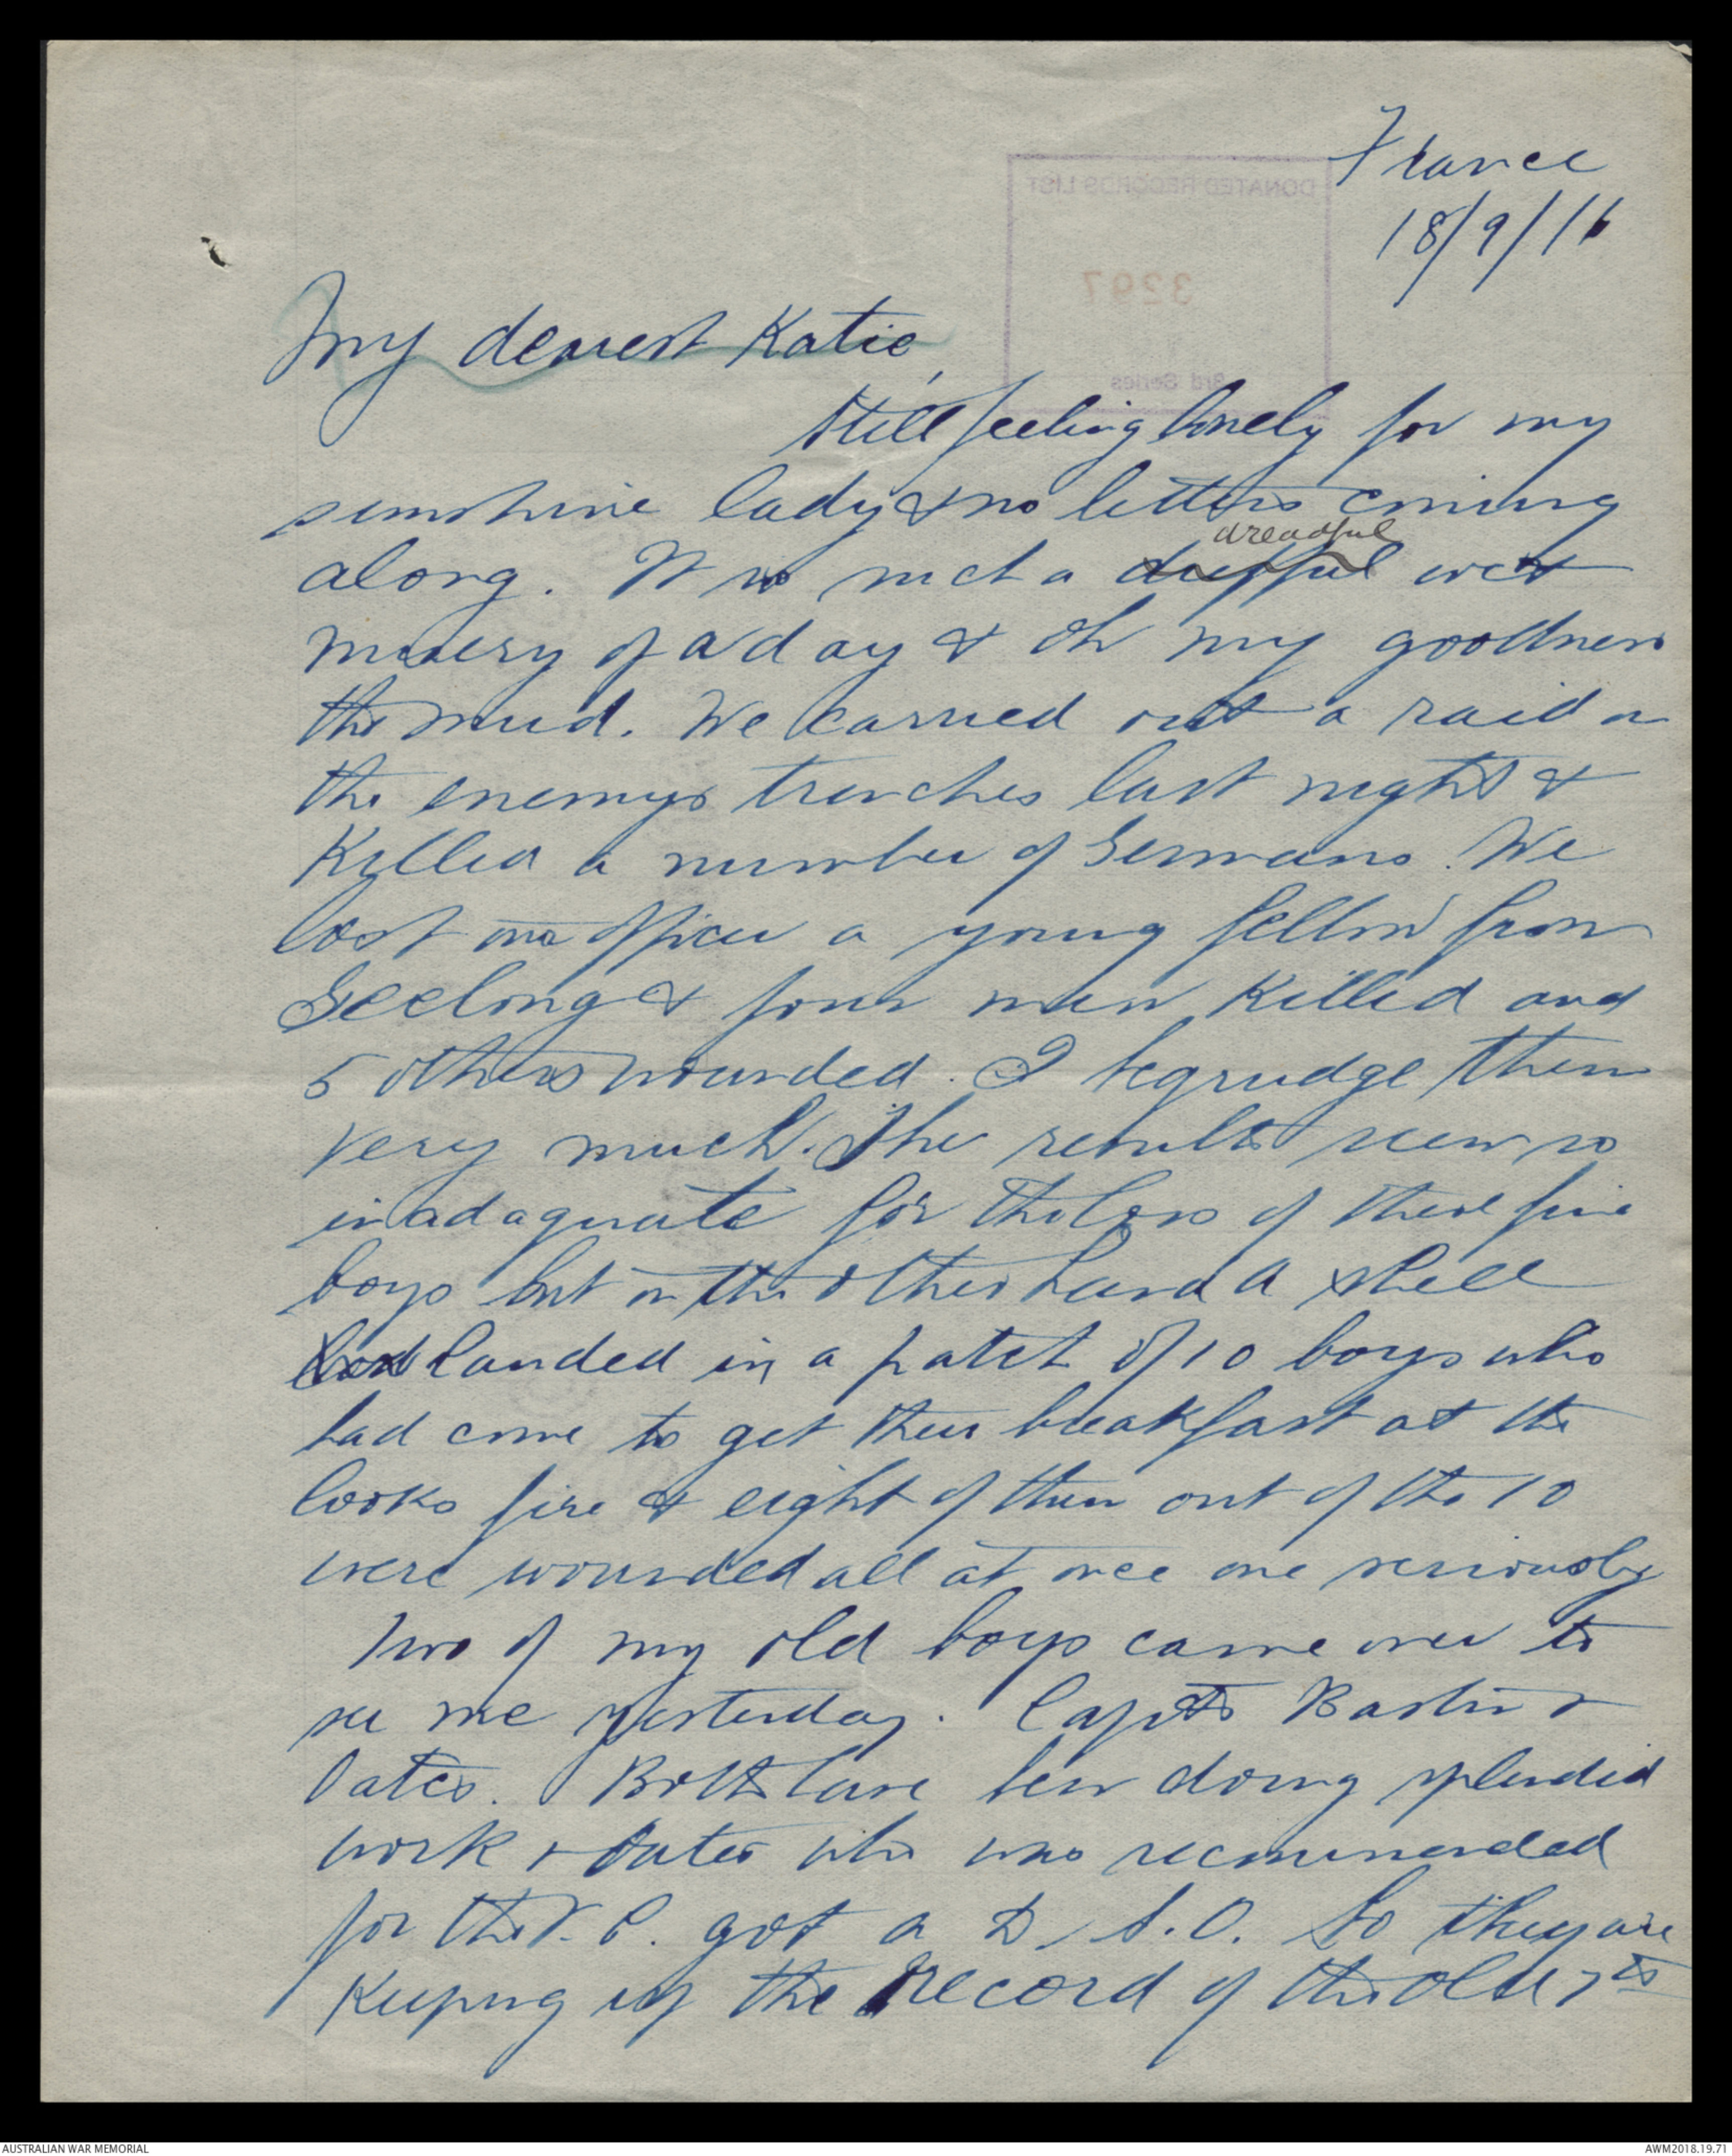 France
18/9/16
DONATED RECORDS LIST
3297
3rd Series
My dearest Katie,
Still feeling lonely for my
sunshine lady & no letters coming
along. It is such a dreadful wet
misery of a day & oh my goodness
the mud. We carried out a raid on
the enemys trenches last night &
killed a number of Germans. We
lost one officer a young fellow from
Geelong & four men killed and
5 others wounded. I begrudge them
very much. The results seem so
inadaquate for the loss of these fine
boys but on the other hand a shell
landed in a patch of 10 boys who
had come to get their breakfast at the
cooks fire & eight of them out of the 10
were wounded all at once one seriously
Two of my old boys came over to
see me yesterday. Capts Bastin &
Oates. Both have been doing splendid
work & Oates who was recommended
for the V.C. got a D.S.O. So they are
keeping up the record of the old 7th
AUSTRALIAN WAR MEMORIAL
AWM2018.19.71